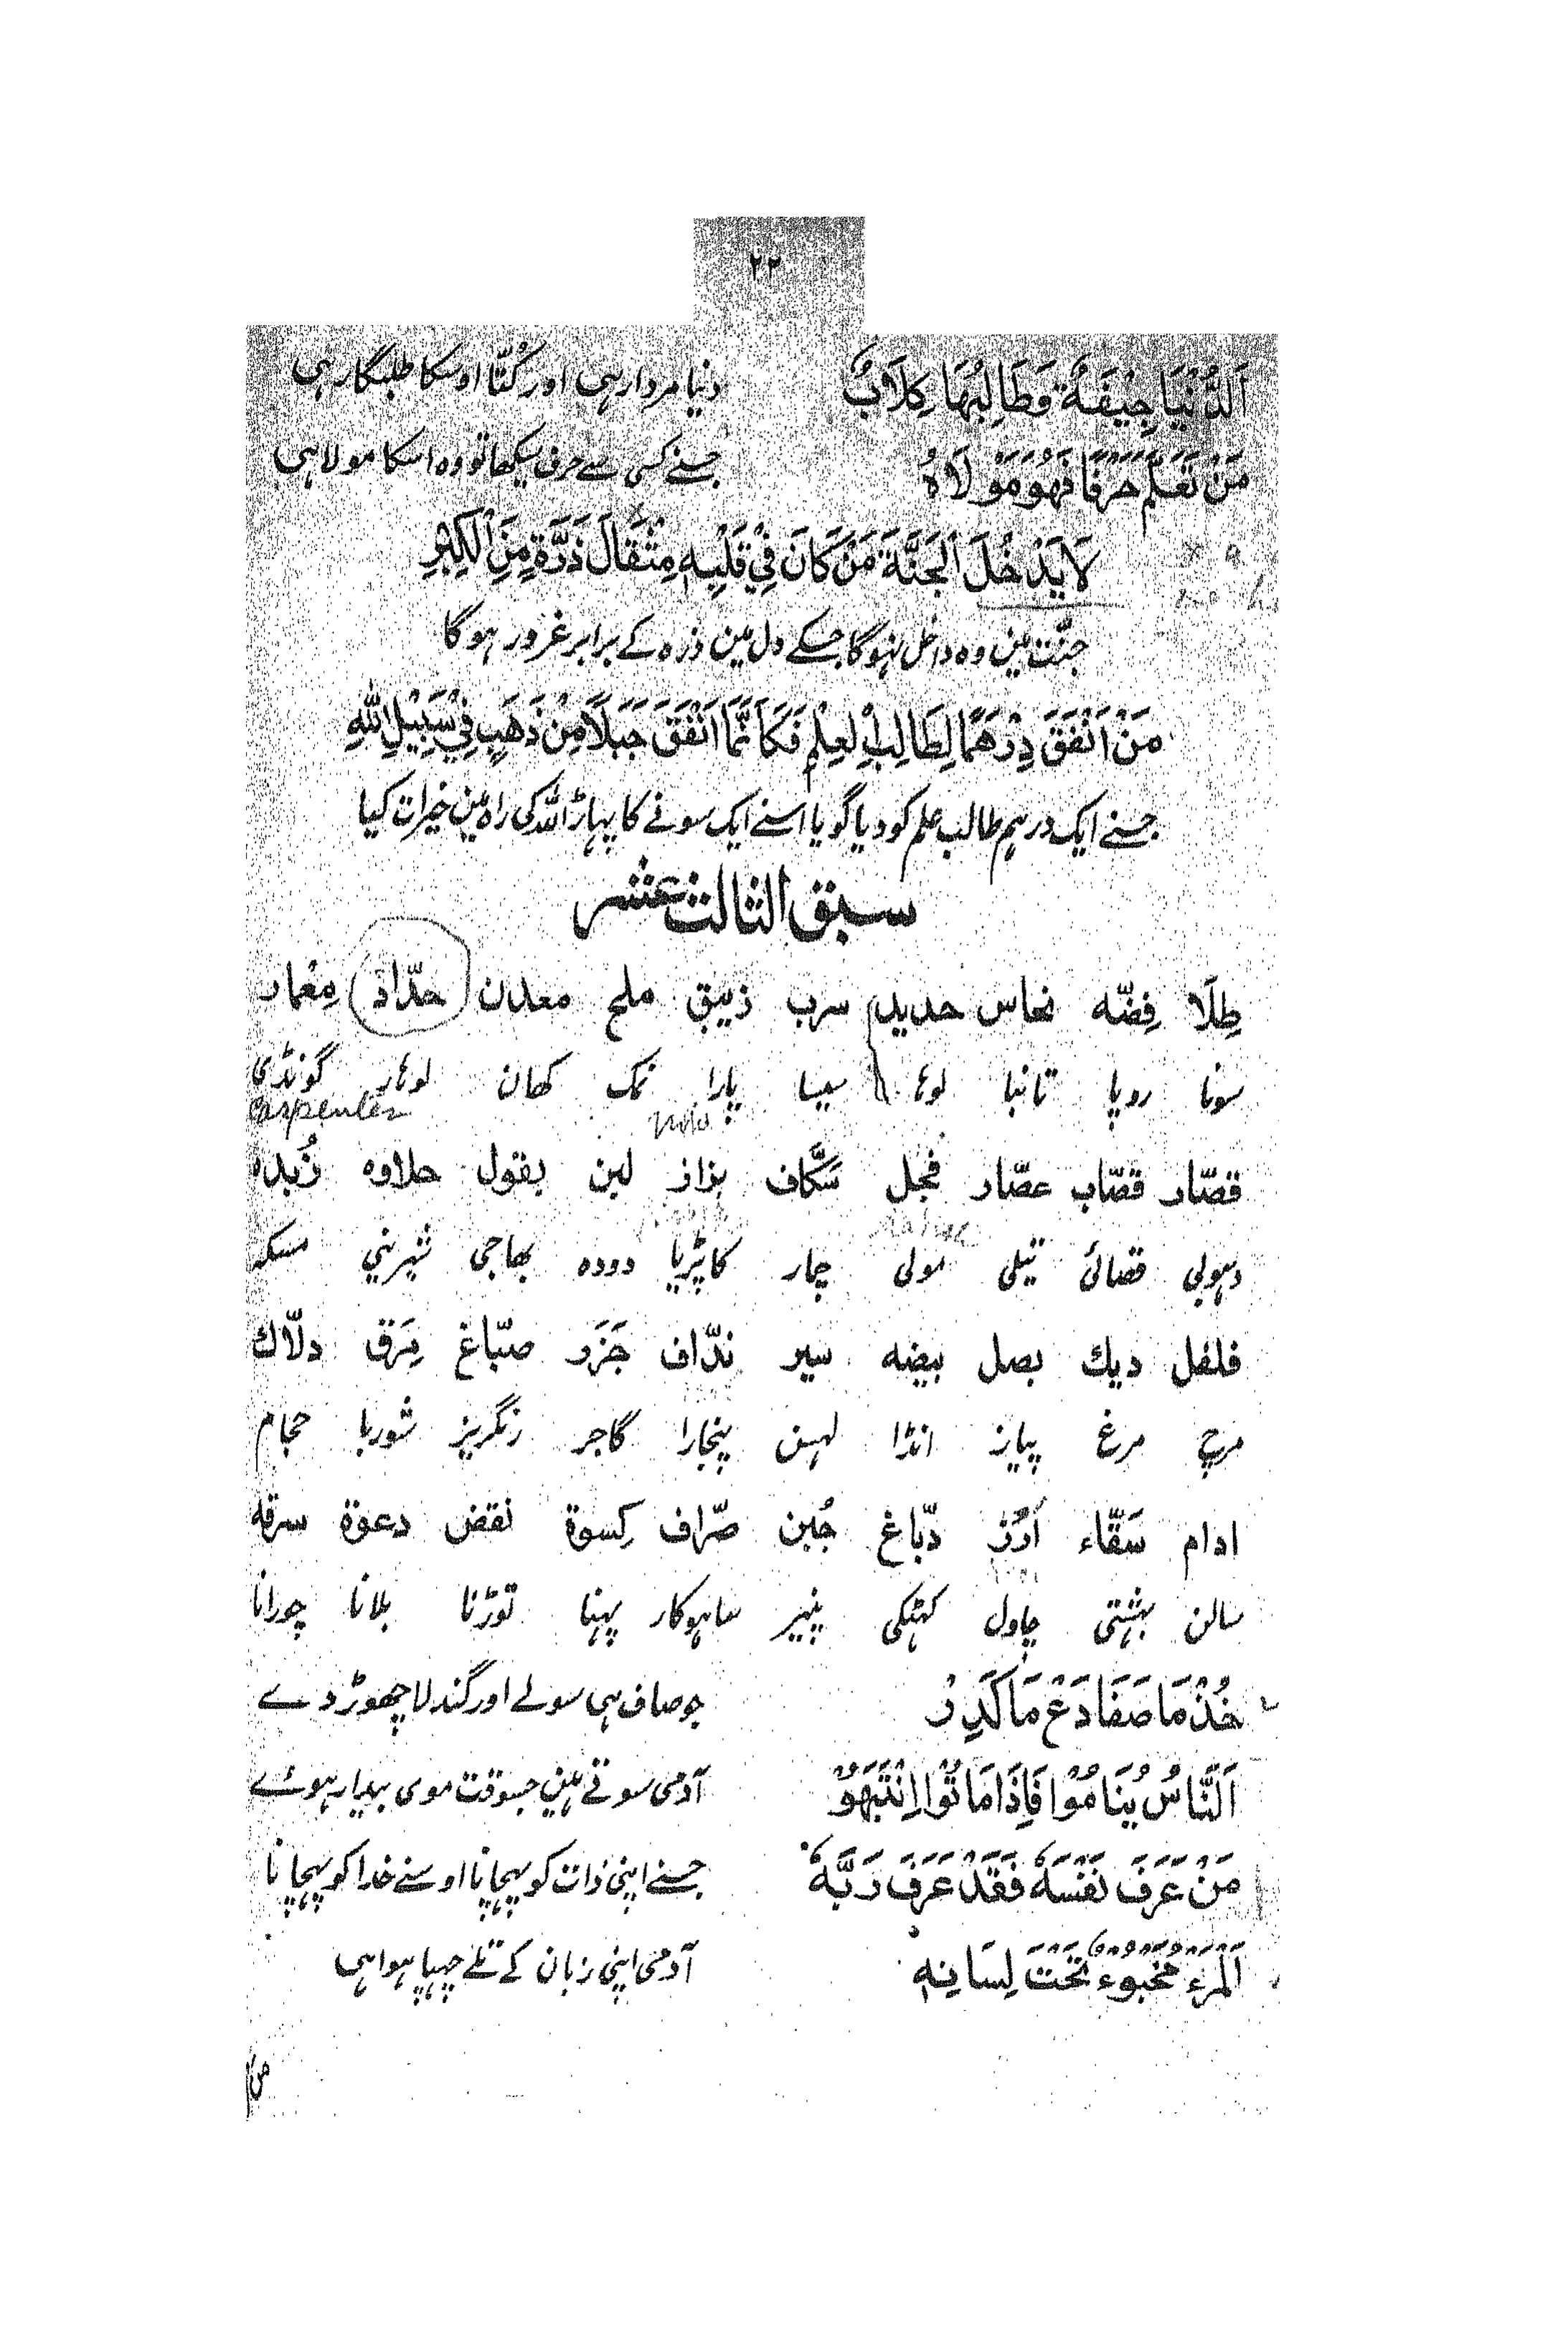 ٢٢
اَلدُّنْيَا جِيْفَةٌ وَطَالِبُهَا كِلَابٌ دنیا مردار ہی اور کُتّا اوسکا طلبگار ہی
مَنْ تَعَلَّمَ حَرْفًا فَهُوَ مَوْلَاهُ جسنے کسی سے حرف سیکھا تو وہ اسکا مولا ہی
لَا يَدْخُلَ الْجَنَّةَ مَنْ كَانَ فِيْ قَلْبِهٖ مِثْقَالَ ذَرَّةٍ مِنَ الْكِبْرِ
جنّت مین وہ داخل نہوگا جسکے دل مین ذرہ کے برابر غرور ہوگا
مَنْ اَنْفَقَ دِرْهَمًا لِطَالِبِ الْعِلْمِ فَكَاَنَّمَا اَنْفَقَ جَبَلًا مِنْ ذَهَبٍ فِيْ سَبِيْلِ اللهِ
جسنے ایک درہم طالب علم کو دیا گویا اسنے ایک سونے کا پہاڑ اللہ کی راہ مین خیرات کیا
سبق الثالث عشر
طِلَا فِضّه نحاس حديد سرب زيبق ملح معدن حدّاد مِعْمار
سونا روپا تانبا لوہا سیسا پارا نمک کھان لوہار گونڈی
Carpenter
قصّار قصّاب عصّار فجل سَكَّاف بزاز لبن بقول حلاوه زُبده
دہوبی قصائی تیلی مولی چمار کاپڑیا دودہ بھاجی شیرینی مسکہ
فلفل ديك بصل بيضه سير ندّاف جَزَر صبّاغ مَرَق دلّاك
مرچ مرغ پیاز انڈا لہسن پنجارا گاجر رنگریز شوربا حجام
ادام سَقّاء اَرُزْ دبّاغ جُبن صرّاف كِسوة نقض دعوة سرقه
سالن بہشتی چاول کہٹکی پنیر ساہوکار پہنا توڑنا بلانا چورانا
خُذْ مَا صَفَا دَعْ مَا كَدِرْ جو صاف ہی سو لے اور گندلا چھوڑ دے
اَلنَّاسُ يَنَامُوْا فَاِذَا مَاتُوْا اِنْتَبَهُوْ آدمی سوتے ہین جسوقت موی بیدار ہوئے
مَنْ عَرَفَ نَفْسَهٗ فَقَدْ عَرَفَ رَبَّهٗ جسنے اپنی ذات کو پہچانا اوسنے خدا کو پہچانا
اَلْمَرْءُ مَخْبُوْءٌ تَحْتَ لِسَانِهٖ آدمی اپنی زبان کے تلے چہپا ہوا ہی